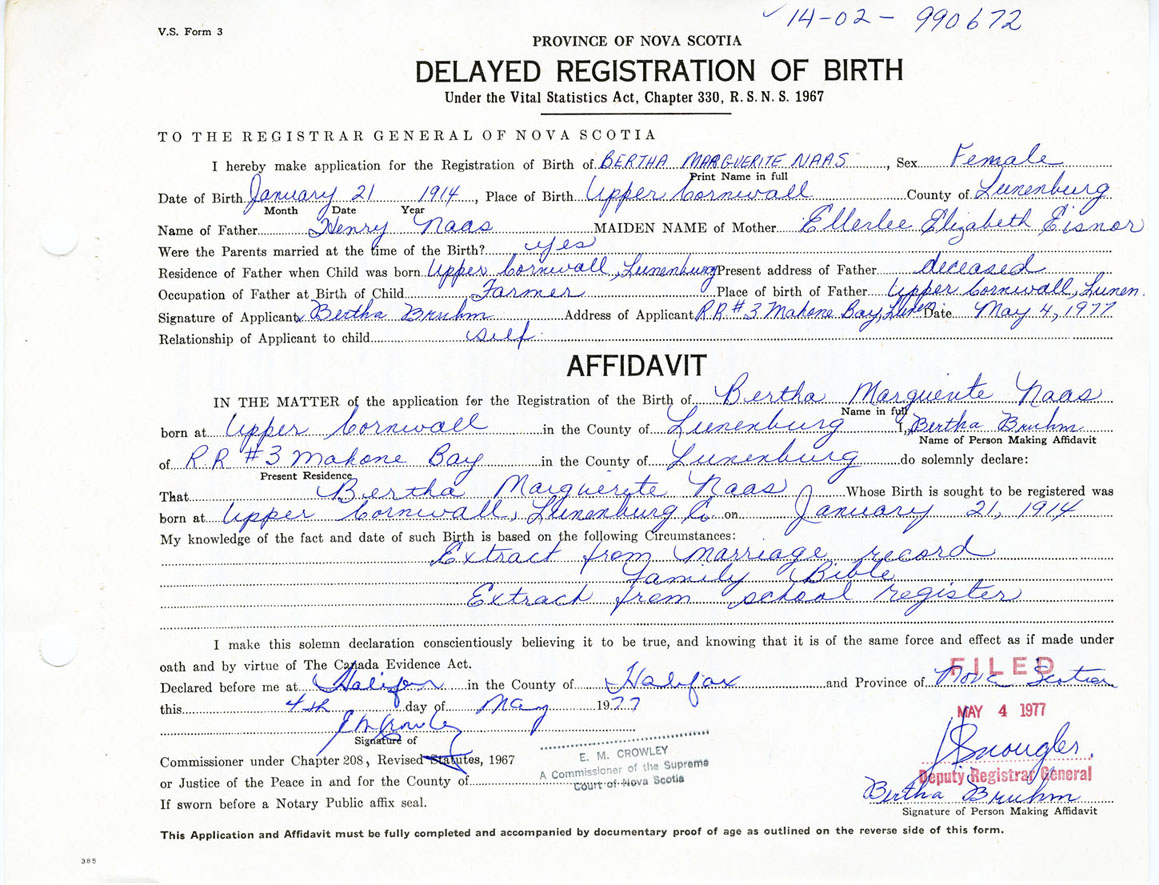 V.S. Form 3
14-02-990672
PROVINCE OF NOVA SCOTIA
DELAYED REGISTRATION OF BIRTH
Under the Vital Statistics Act, Chapter 330, R.S.N.S. 1967
TO THE REGISTRAR GENERAL OF NOVA SCOTIA
I hereby make application for the Registration of Birth of BERTHA MARGUERITE NAAS, Sex Female
Print Name in full
Date of Birth January 21 1914, Place of Birth Upper Cornwall County of Lunenburg
Month Date Year
Name of Father Henry Naas MAIDEN NAME of Mother Ellerlee Elizabeth Eisnor
Were the Parents married at the time of the Birth? yes
Residence of Father when Child was born Upper Cornwall, Lunenburg Present address of Father deceased
Occupation of Father at Birth of Child Farmer Place of birth of Father Upper Cornwall, Lunen.
Signature of Applicant x Bertha Bruhm Address of Applicant R.R #3 Mahone Bay, Lunen Date May 4, 1977
Relationship of Applicant to child self
AFFIDAVIT
IN THE MATTER of the application for the Registration of the Birth of Bertha Marguerite Naas
Name in full
born at Upper Cornwall in the County of Lunenburg I, Bertha Bruhm
Name of Person Making Affidavit
of R.R #3 Mahone Bay in the County of Lunenburg do solemnly declare:
Present Residence
That Bertha Marguerite Naas Whose Birth is sought to be registered was
born at Upper Cornwall, Lunenburg Co. on January 21, 1914
My knowledge of the fact and date of such Birth is based on the following Circumstances:
Extract from marriage record
Family Bible
Extract from school register
I make this solemn declaration conscientiously believing it to be true, and knowing that it is of the same force and effect as if made under
oath and by virtue of The Canada Evidence Act.
FILED
Declared before me at Halifax in the County of Halifax and Province of Nova Scotia
this 4th day of May 1977
MAY 4 1977
E M Crowley
Signature of
Commissioner under Chapter 208, Revised Statutes, 1967
E. M. CROWLEY
A Commissioner of the Supreme
Court of Nova Scotia
or Justice of the Peace in and for the County of
Deputy Registrar General
If sworn before a Notary Public affix seal.
Bertha Bruhm
Signature of Person Making Affidavit
This Application and Affidavit must be fully completed and accompanied by documentary proof of age as outlined on the reverse side of this form.
385